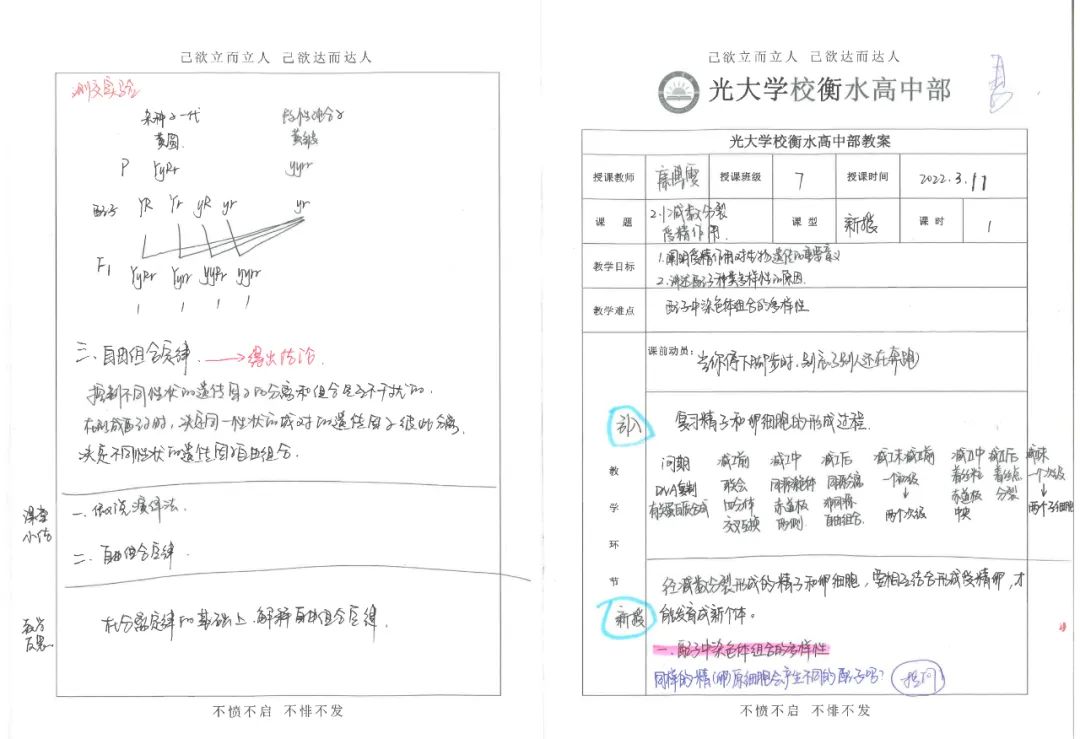 己欲立而立人 己欲达而达人
测交实验
杂种子一代 隐性纯合子
黄圆 黄皱
P YyRr yyrr
配子 YR Yr yR yr yr
F1 YyRr Yyrr yyRr yyrr
1 1 1 1
三、自由组合定律 →得出结论.
控制不同性状的遗传因子的分离和组合是互不干扰的.
在形成配子时,决定同一性状的成对的遗传因子彼此分离,
决定不同性状的遗传因子自由组合.
课堂小结
一、假说演绎法.
二、自由组合定律
教学反思
在分离定律的基础上,解释自由组合定律.
不愤不启 不悱不发
己欲立而立人 己欲达而达人
光大学校衡水高中部
光大学校衡水高中部教案
授课教师 授课班级 7 授课时间 2022.3.17
课 题 2.1减数分裂 受精作用. 课 型 新授 课 时 1
教学目标 1.阐明受精作用对生物遗传的重要意义
2.讲述配子种类多样性的原因.
教学难点 配子中染色体组合的多样性
课前动员: 当你停下脚步时,别忘了别人还在奔跑
教学环节
引入 复习精子和卵细胞的形成过程.
间期 减I前 减I中 减I后 减I末减II前 减II中 减II后 减II末
DNA复制 联会 同源染色体 同源分离 一个初级 着丝粒 着丝点 一个次级
有关蛋白质合成 四分体 赤道板 非同源 ↓ 赤道板 分裂 ↓
交叉互换 两侧 自由组合. 两个次级 中央 两个子细胞
经减数分裂形成的精子和卵细胞,要相互结合形成受精卵,才
新授 能发育成新个体.
一.配子中染色体组合的多样性
同样的精(卵)原细胞会产生不同的配子吗? 提问
不愤不启 不悱不发